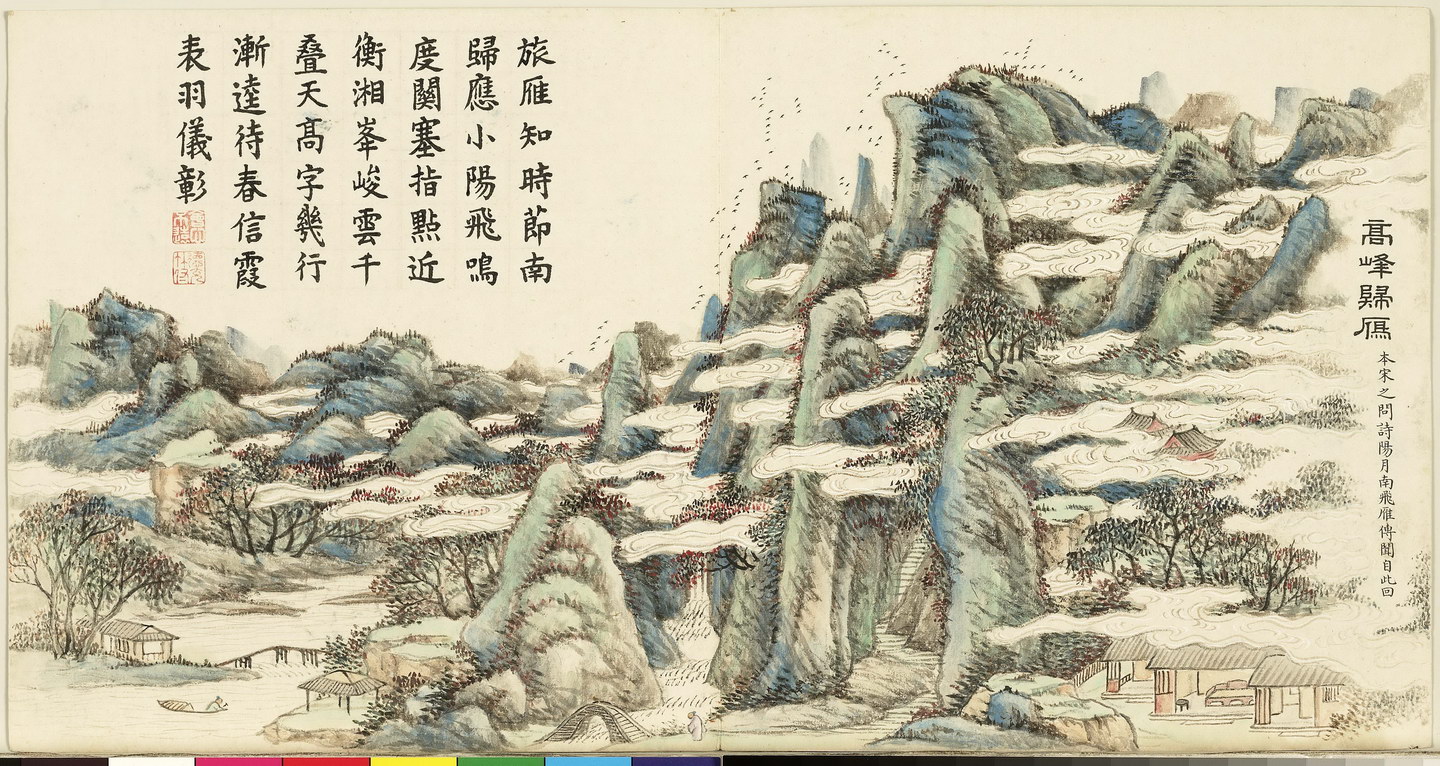 髙峰歸鴈
本宋之問詩陽月南飛雁傳聞自此回
旅雁知時節南
歸應小陽飛鳴
度關塞指點近
衡湘峯峻雲千
叠天髙字幾行
漸逵待春信霞
表羽儀彰